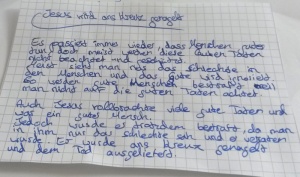 Jesus wird ans Kreuz genagelt
Es passiert immer wieder, dass Menschen gutes
tun, doch meist werden diese Taten
nicht beachtet und
Meist sieht man nur das schlechte in
den Menschen und das Gute wird ignoriert.
So werden gute Menschen bestraft weil
man nicht auf die guten Taten achtet.
Auch Jesus vollbrachte viele gute Taten und
war ein guter Mensch.
Jedoch wurde er trotzdem bestraft, da man
in ihm nur das schlechte sah und er verraten
wurde. Er wurde ans Kreuz genagelt
und dem Tod ausgeliefert.